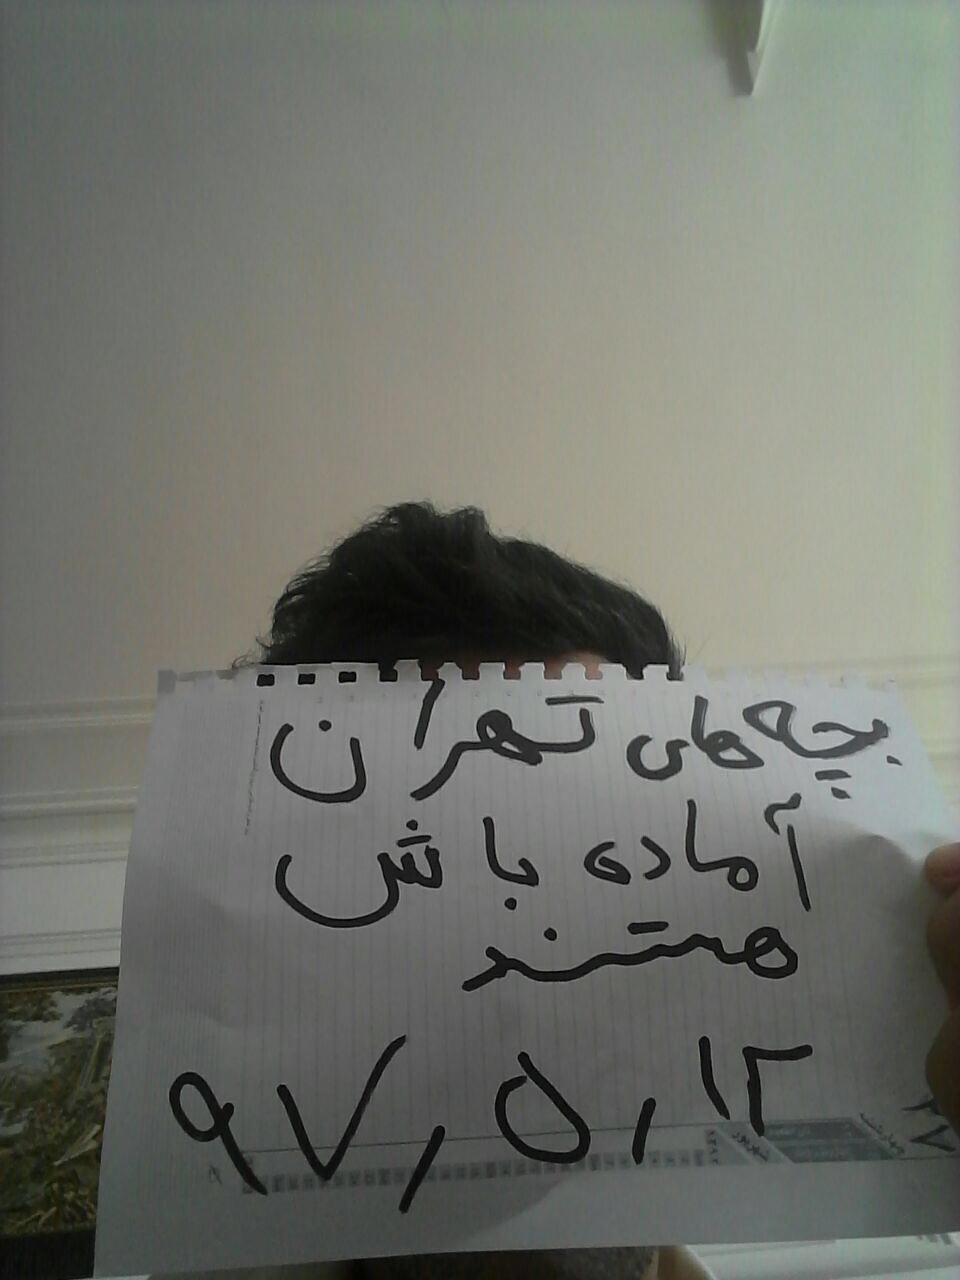 بچه های تهران
آماده باش
هستند
۹۷,۵,۱۲
شهریور